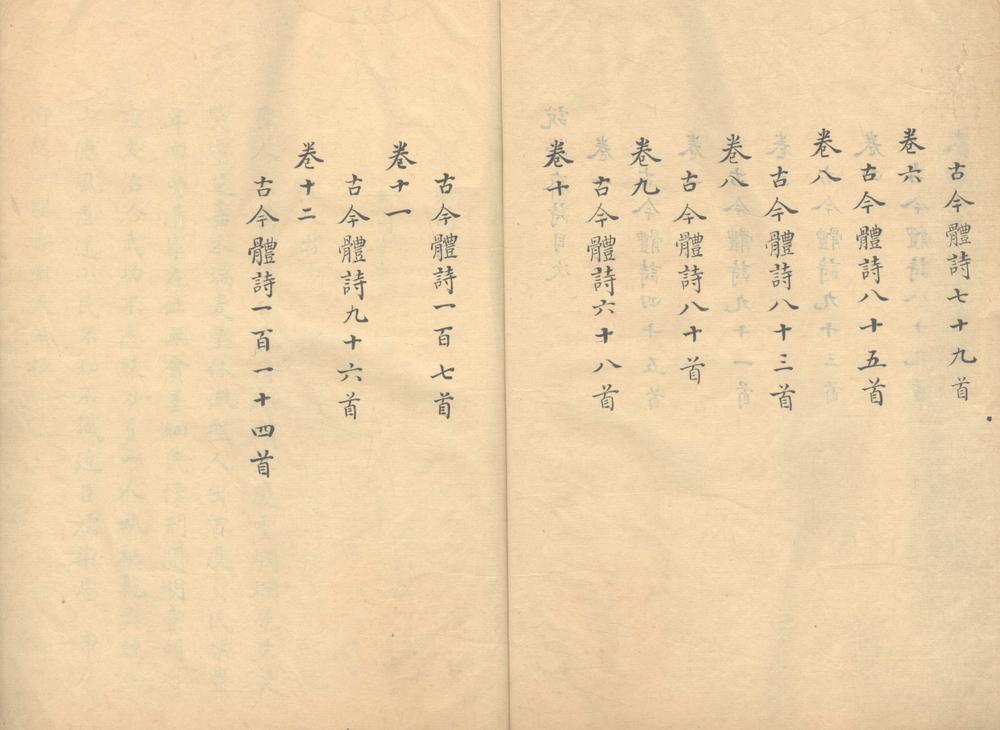 古今體詩七十九首
卷六
古今體詩八十五首
卷八
古今體詩八十三首
卷八
古今體詩八十首
卷九
古今體詩六十八首
卷十
古今體詩一百七首
卷十一
古今體詩九十六首
卷十二
古今體詩一百一十四首